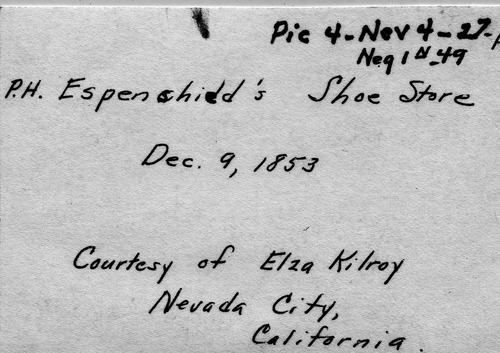 Pic 4-Nev 4-27-p
Neg 1 N-49
P.H. Espenchidd's Shoe Store
Dec. 9, 1853
Courtesy of Elza Kilroy
Nevada City,
California.